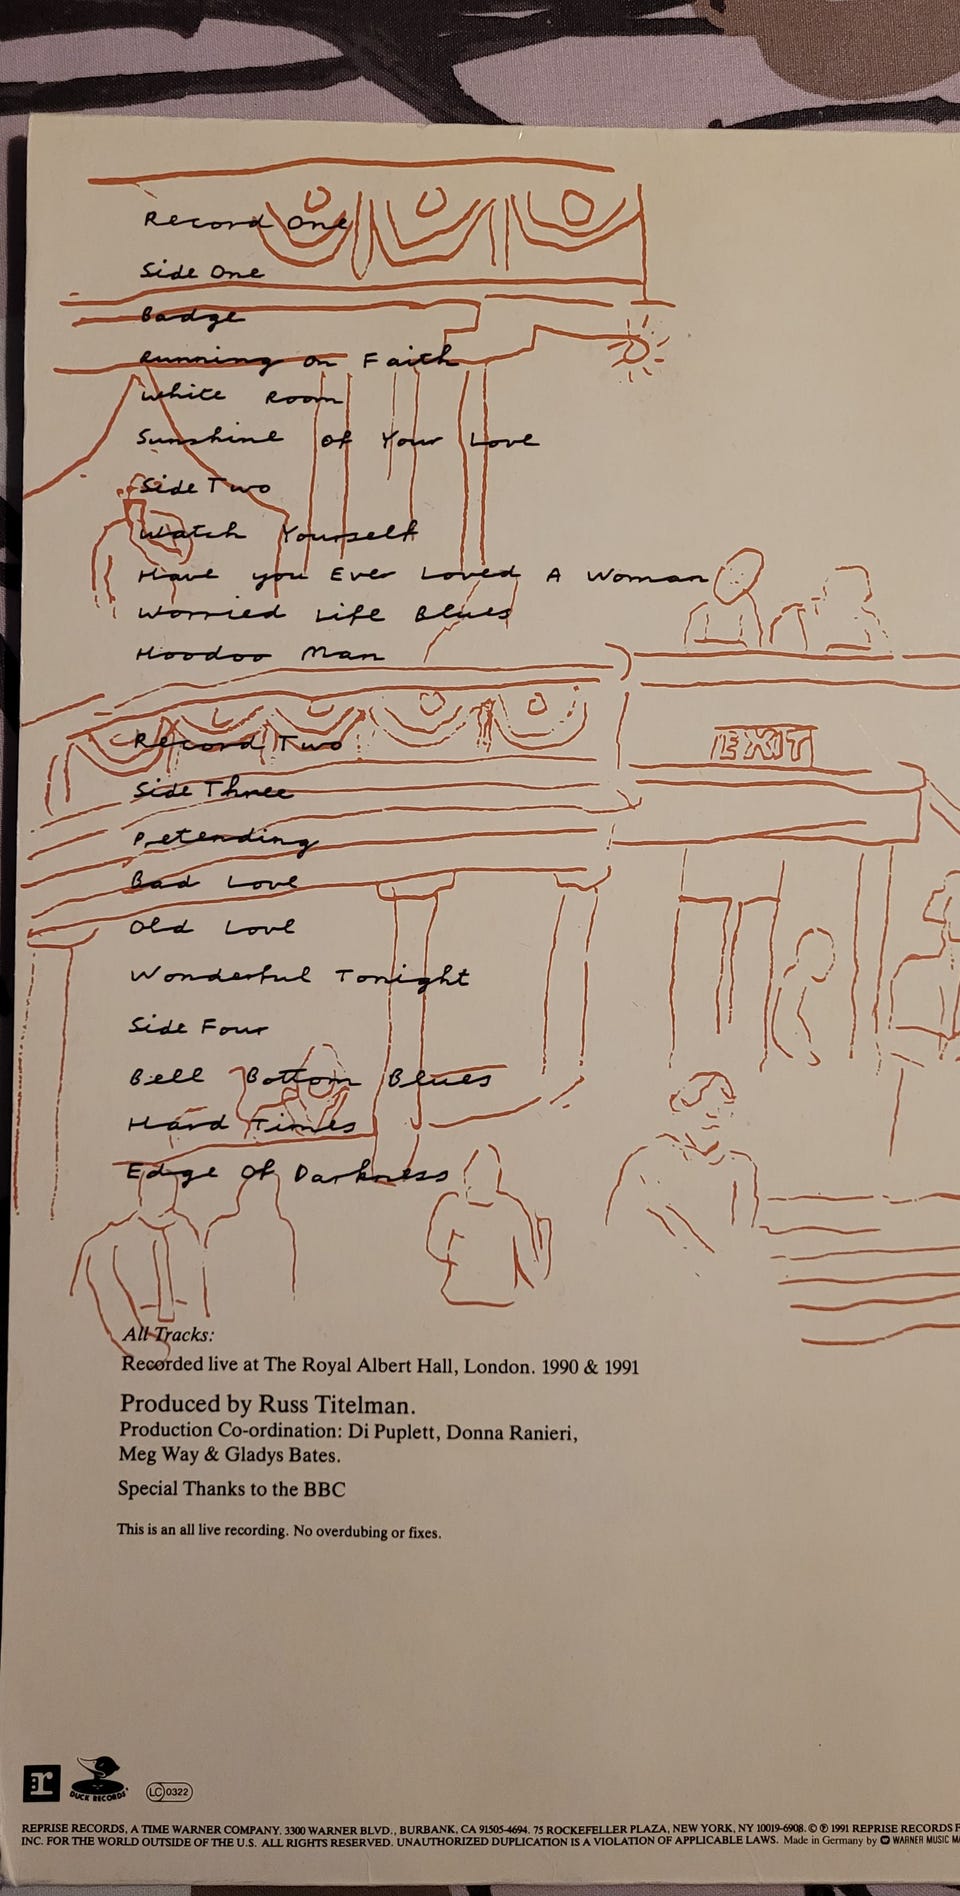 Record One
Side One
Badge
Running on Faith
White Room
Sunshine of Your Love
Side Two
Watch Yourself
Have you Ever Loved A Woman
Worried Life Blues
Hoodoo Man
EXIT
Record Two
Side Three
Pretending
Bad Love
Old Love
Wonderful Tonight
Side Four
Bell Bottom Blues
Hard Times
Edge Of Darkness
All Tracks:
Recorded live at The Royal Albert Hall, London. 1990 & 1991
Produced by Russ Titelman.
Production Co-ordination: Di Puplett, Donna Ranieri,
Meg Way & Gladys Bates.
Special Thanks to the BBC
This is an all live recording. No overdubing or fixes.
r
DUCK RECORDS
LC 0322
REPRISE RECORDS, A TIME WARNER COMPANY. 3300 WARNER BLVD., BURBANK, CA 91505-4694. 75 ROCKEFELLER PLAZA, NEW YORK, NY 10019-6908. © ℗ 1991 REPRISE RECORDS
INC. FOR THE WORLD OUTSIDE OF THE U.S. ALL RIGHTS RESERVED. UNAUTHORIZED DUPLICATION IS A VIOLATION OF APPLICABLE LAWS. Made in Germany by WARNER MUSIC